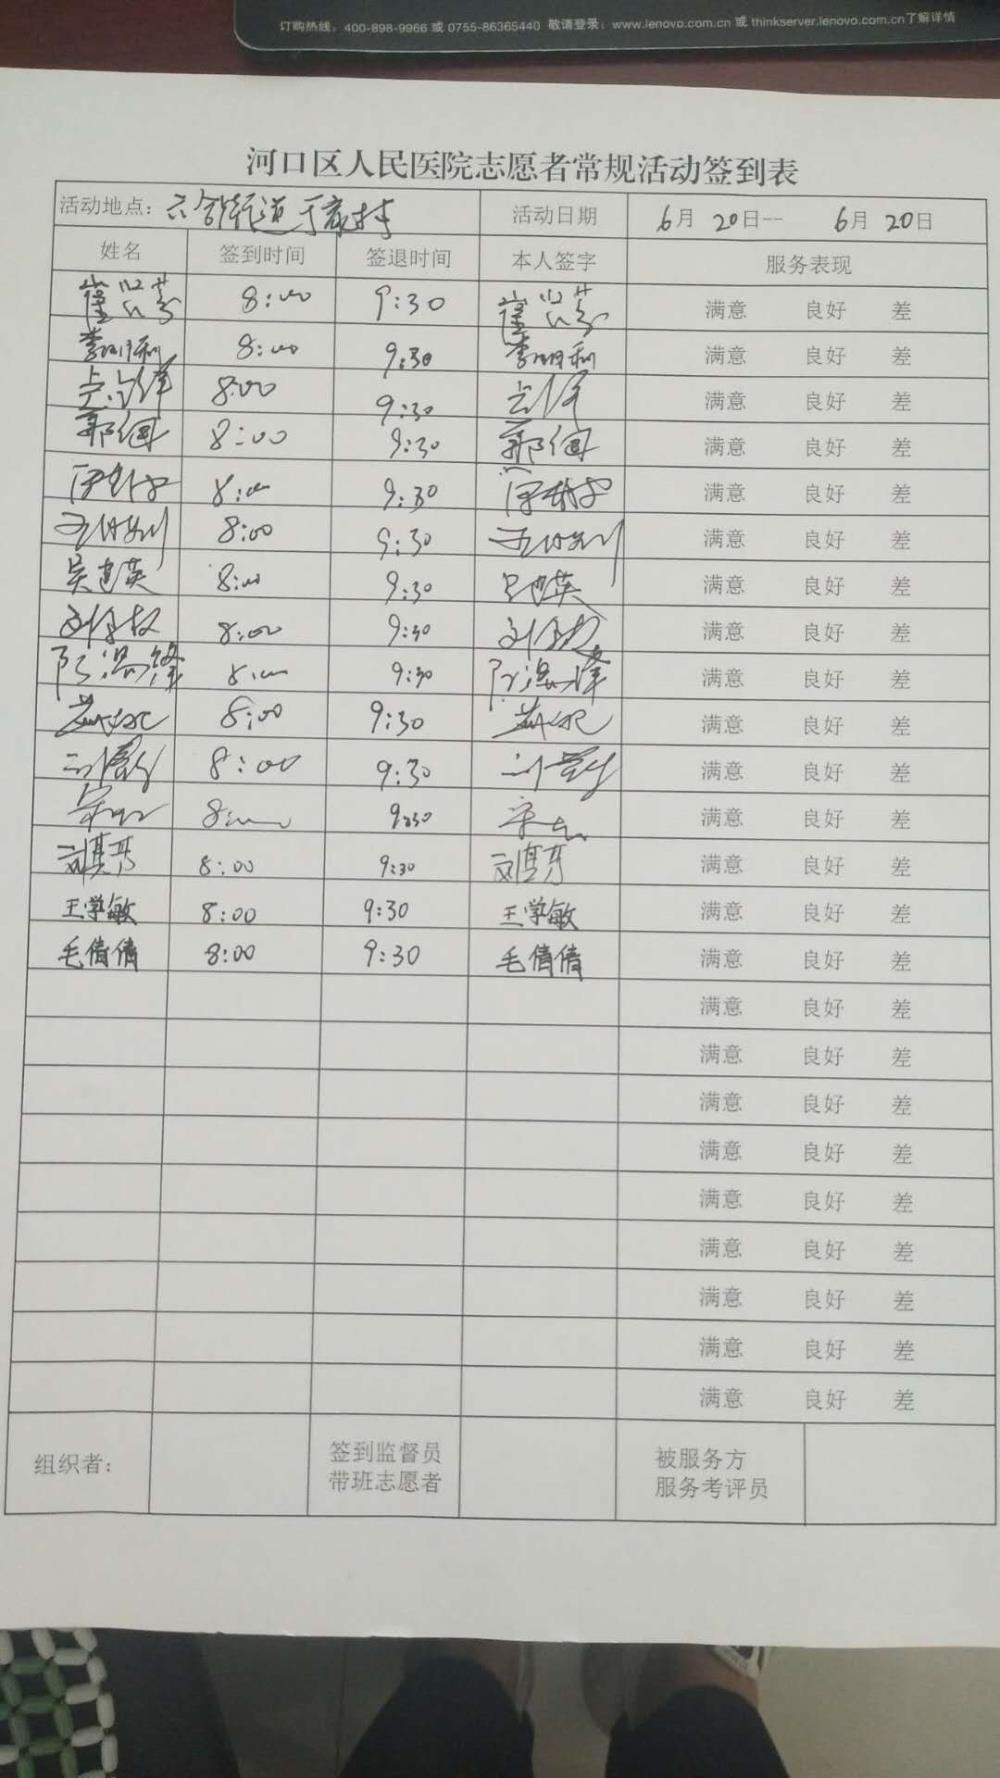 订购热线：400-898-9966 或 0755-86365440 敬请登录：www.lenovo.com.cn 或 thinkserver.lenovo.com.cn了解详情
河口区人民医院志愿者常规活动签到表
活动地点：六合街道 活动日期 6月 20日-- 6月 20日
姓名 签到时间 签退时间 本人签字 服务表现
8:00 9:30 满意 良好 差
李明利 8:00 9:30 李明利 满意 良好 差
8:00 9:30 满意 良好 差
8:00 9:30 满意 良好 差
8:00 9:30 满意 良好 差
8:00 9:30 满意 良好 差
吴建英 8:00 9:30 吴建英 满意 良好 差
8:00 9:30 满意 良好 差
8:00 9:30 满意 良好 差
8:00 9:30 满意 良好 差
8:00 9:30 满意 良好 差
8:00 9:30 满意 良好 差
8:00 9:30 满意 良好 差
王学敏 8:00 9:30 王学敏 满意 良好 差
毛倩倩 8:00 9:30 毛倩倩 满意 良好 差
满意 良好 差
满意 良好 差
满意 良好 差
满意 良好 差
满意 良好 差
满意 良好 差
满意 良好 差
满意 良好 差
满意 良好 差
组织者： 签到监督员 被服务方
带班志愿者 服务考评员